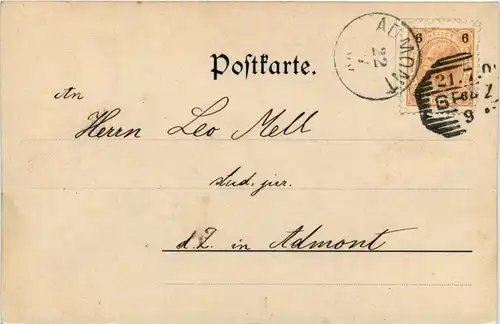 ADMONT
22
7
6 6
21.7.0
GRAZ
9
Postkarte.
An
Herrn Leo Mell
stud. jur.
d. Z. in Admont